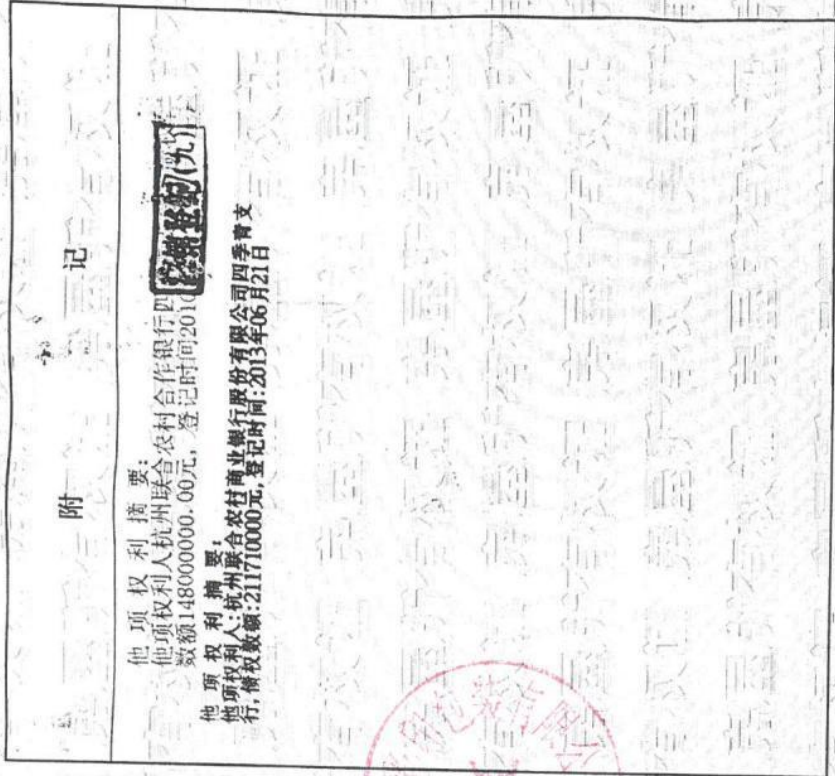 附 记
他 项 权 利 摘 要:
他项权利人杭州联合农村合作银行四
数额148000000.00元, 登记时间2010
注销登记(九)
他 项 权 利 摘 要:
他项权利人:杭州联合农村商业银行股份有限公司四季青支
行,债权数额:211710000元,登记时间:2013年06月21日